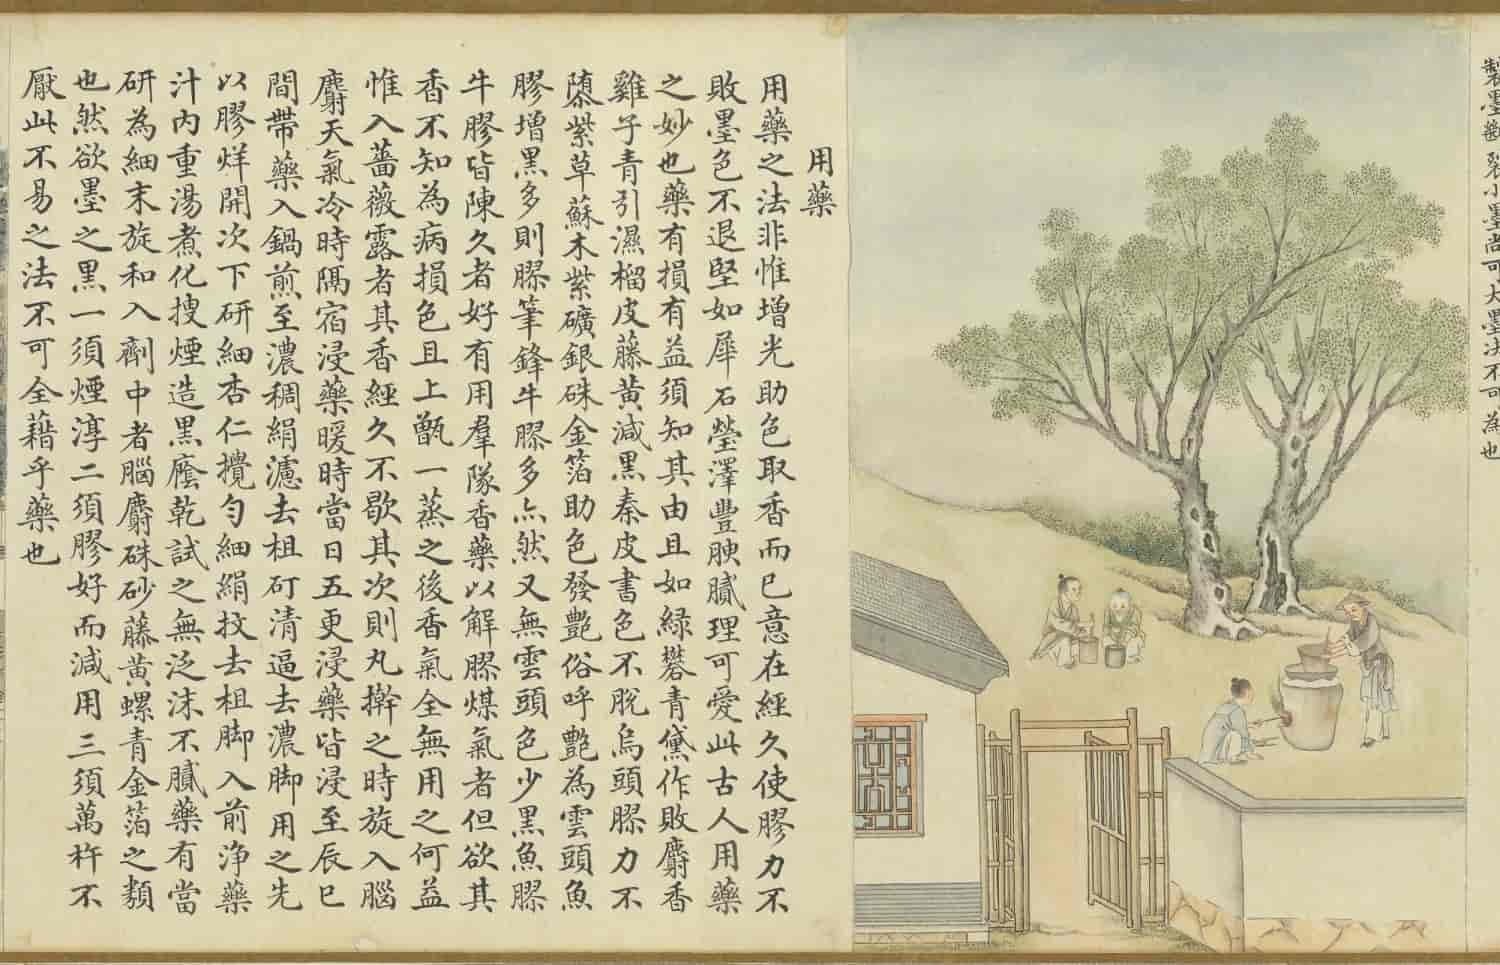 製墨嚴裝小墨尚可大墨決不可為也
用藥
用藥之法非惟增光助色取香而已意在經久使膠力不
敗墨色不退堅如犀石瑩澤豐腴膩理可愛此古人用藥
之妙也藥有損有益須知其由且如綠礬青黛作敗麝香
雞子青引濕榴皮藤黃減黑秦皮書色不脫烏頭膠力不
隳紫草蘇木紫礦銀硃金箔助色發艷俗呼艷為雲頭魚
膠增黑多則膠筆鋒牛膠多亦然又無雲頭色少黑魚膠
牛膠皆陳久者好有用羣隊香藥以解膠煤氣者但欲其
香不知為病損色且上甑一蒸之後香氣全無用之何益
惟入薔薇露者其香經久不歇其次則丸擀之時旋入腦
麝天氣冷時隔宿浸藥暖時當日五更浸藥皆浸至辰巳
間帶藥入鍋煎至濃稠絹濾去柤矴清逼去濃脚用之先
以膠烊開次下研細杏仁攪勻細絹挍去柤脚入前淨藥
汁內重湯煮化搜煙造黑䕃乾試之無泛沫不膩藥有當
研為細末旋和入劑中者腦麝硃砂藤黃螺青金箔之類
也然欲墨之黑一須煙淳二須膠好而減用三須萬杵不
厭此不易之法不可全藉乎藥也